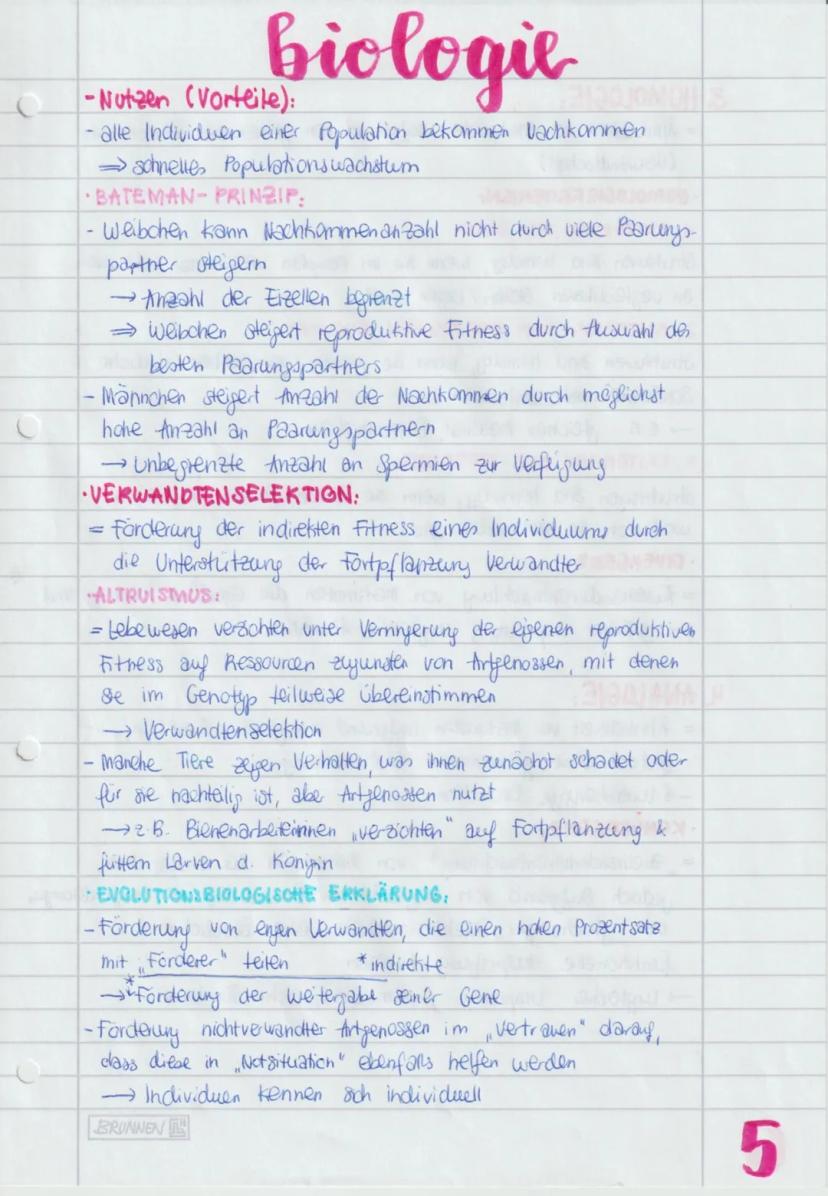 Biologie
- Nutzen (Vorteile):
- alle Individuen einer Population bekommen Nachkommen
⇒ schnelles Populationswachstum
· BATEMAN-PRINZIP:
- Weibchen kann Nachkommenanzahl nicht durch viele Paarungs-
partner steigern
→ Anzahl der Eizellen begrenzt
⇒ Weibchen steigert reproduktive Fitness durch Auswahl des
besten Paarungspartners
- Männchen steigert Anzahl der Nachkommen durch möglichst
hohe Anzahl an Paarungspartnern
→ Unbegrenzte Anzahl an Spermien zur Verfügung
· VERWANDTENSELEKTION:
= Förderung der indirekten Fitness eines Individuums durch
die Unterstützung der Fortpflanzung Verwandter
· ALTRUISMUS:
= Lebewesen verzichten unter Verringerung der eigenen reproduktiven
Fitness auf Ressourcen zugunsten von Artgenossen, mit denen
sie im Genotyp teilweise übereinstimmen
→ Verwandtenselektion
- Manche Tiere zeigen Verhalten, was ihnen zunächst schadet oder
für sie nachteilig ist, aber Artgenossen nutzt
→ z.B. Bienenarbeiterinnen „verzichten" auf Fortpflanzung &
füttern Larven d. Königin
· EVOLUTIONSBIOLOGISCHE ERKLÄRUNG:
- Förderung von engen Verwandten, die einen hohen Prozentsatz
mit „Förderer" teilen *indirekte
→ * Förderung der Weitergabe seiner Gene
- Förderung nichtverwandter Artgenossen im „Vertrauen" darauf,
dass diese in „Notsituation" ebenfalls helfen werden
→ Individuen kennen sich individuell
BRUNNEN
5